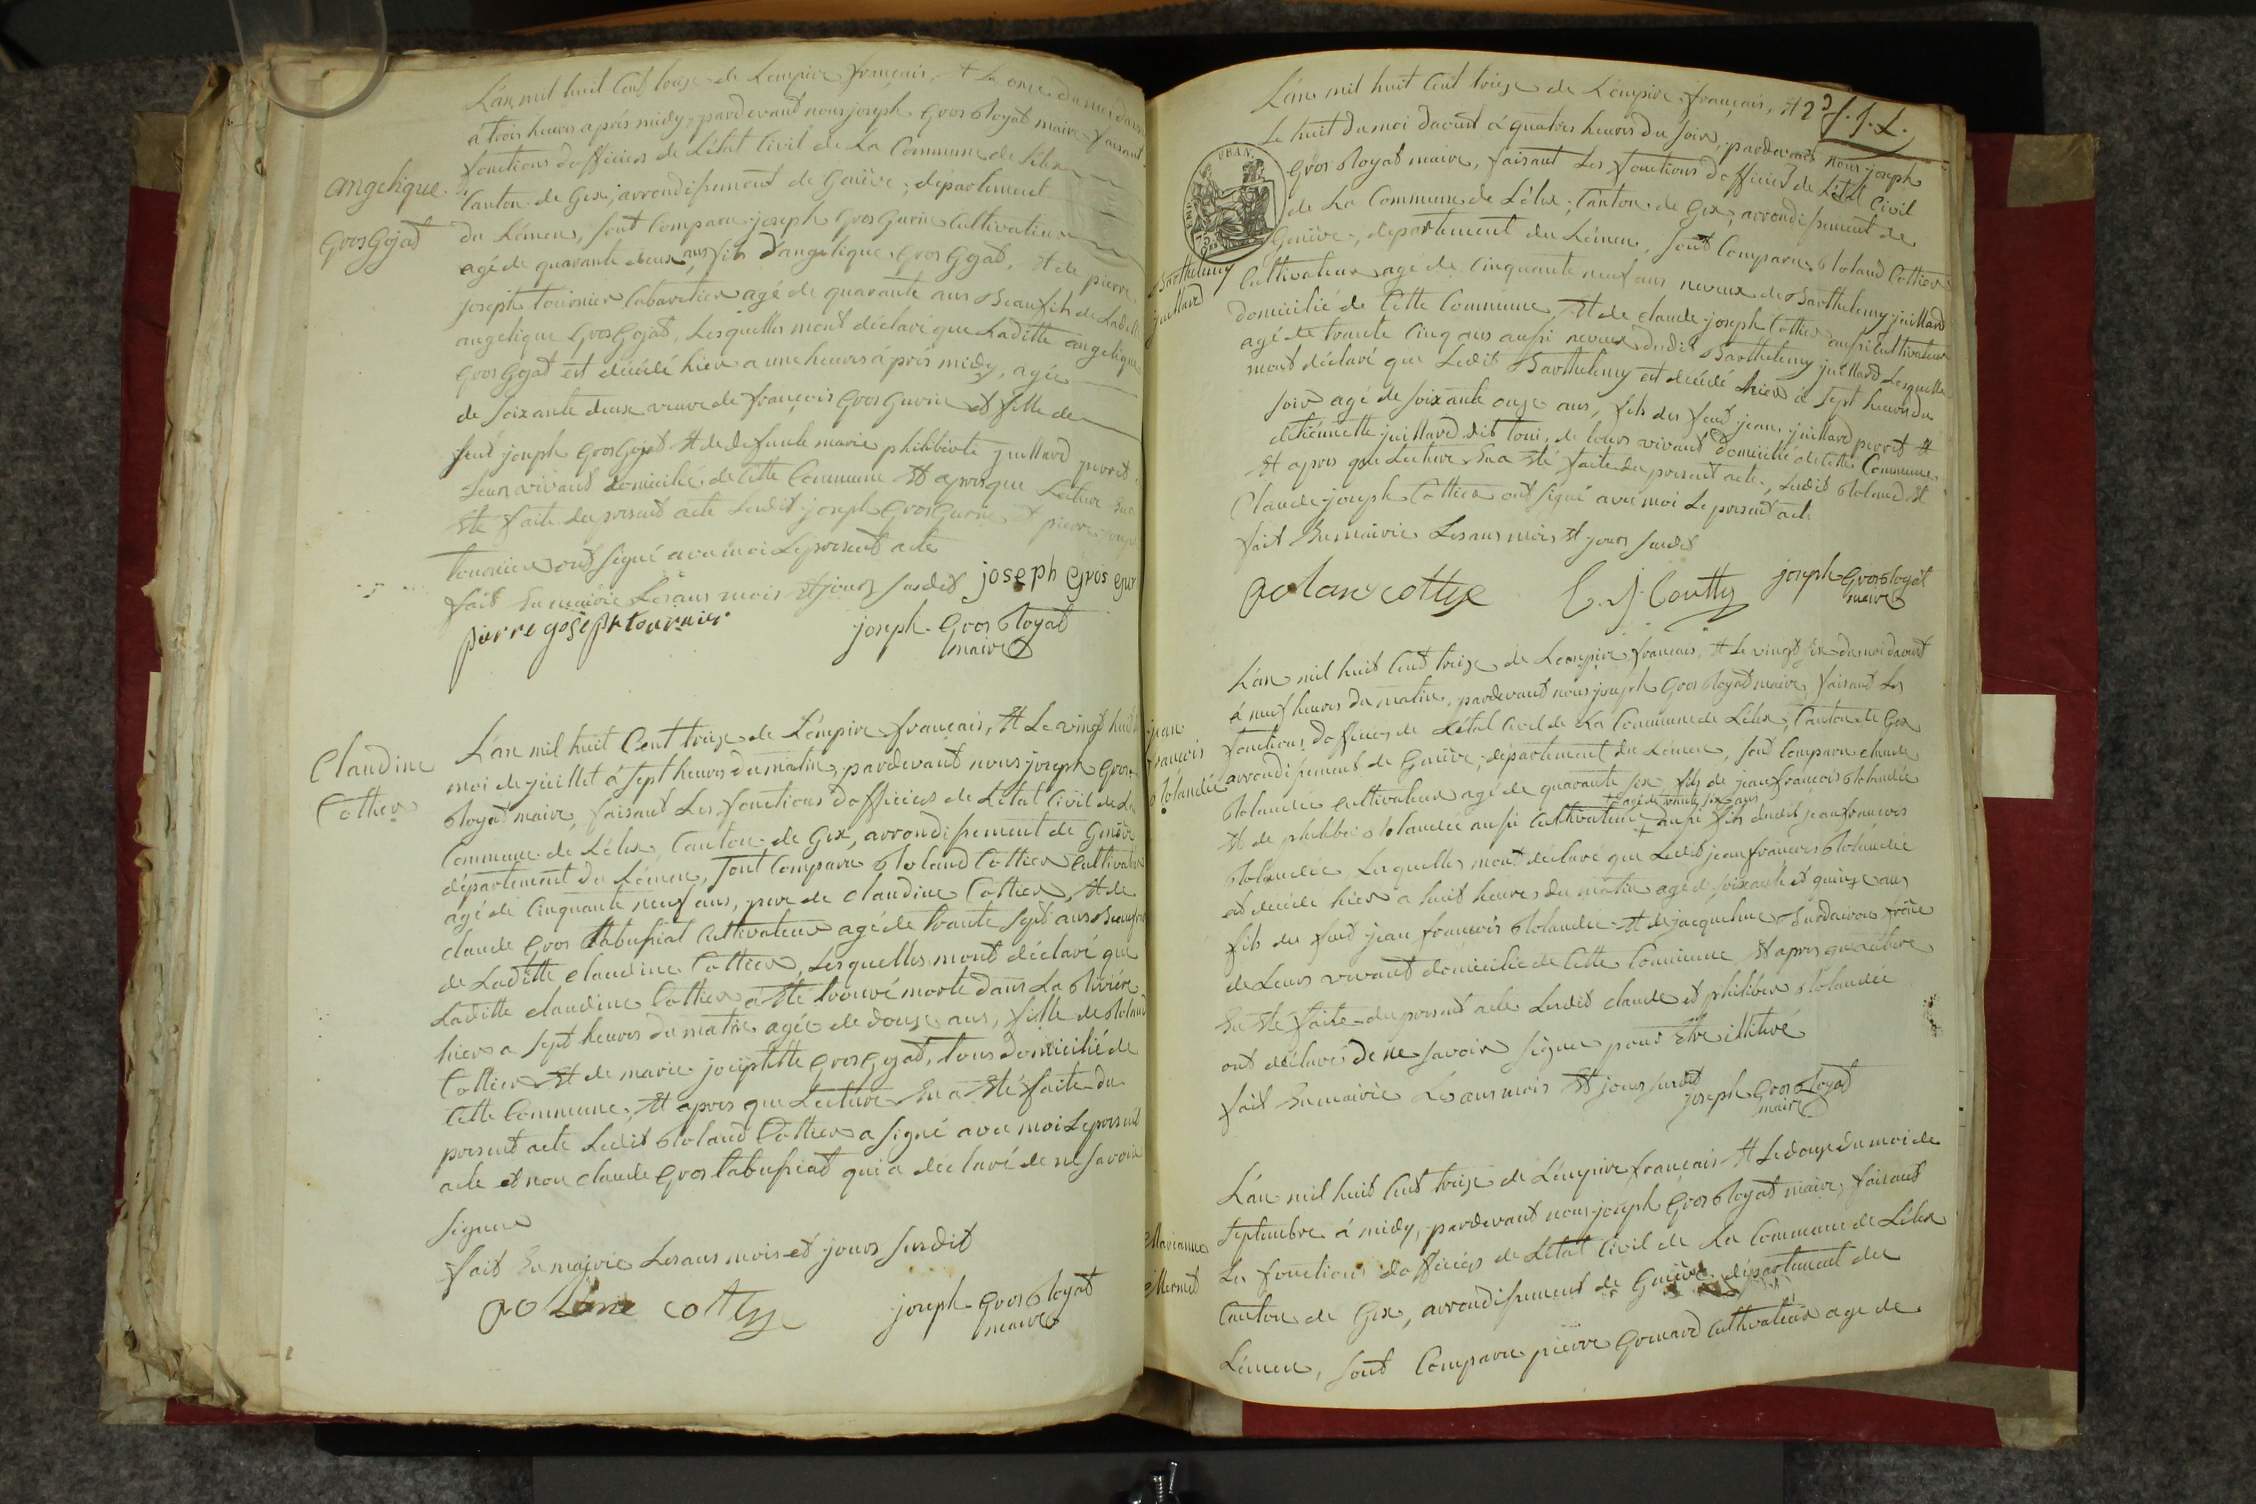 L'an mil huit Cent treize de L'empire français, Et Le onze du moi
a trois heures aprés midy, pardevant nous joseph Gros Royat maire faisant
fonctions d'officier de L'état Civil de La Commune de Lélex
angelique
Canton de Gex, arrondissement de Genève, département
Gros Gojat
du Lémen, sont Comparu joseph Gros Gurin Cultivateur
agé de quarante deux ans fils d'angelique Gros Gojat, Et de pierre
joseph tournier Cabaretier agé de quarante ans Beaufils de Laditte
angelique Gros Gojat, Lesquelles mont déclaré que Laditte angelique
Gros Gojat est décédé hier a une heures à prés midy, agée
de soixante deux veuve de françois Gros Gurin et fille de
feut joseph Gros Gojat Et de defunte marie philiberte juillard perret
Leurs vivant domicilié de Cette Commune Et apres que Lecture En a
Eté faite du present acte Ledit joseph Gros Gurin Et pierre
tournier ont signé avec moi Le present acte
fait En mairie Les ans mois Et jours susdit joseph Gros gur
pierre joseph tournier
joseph Gros Royat
maire
Claudine
Cottier
L'an mil huit Cent treize de L'empire français, Et Le vingt huit
moi de juillet à sept heures du matin, pardevant nous joseph Gros
Royat maire, faisant Les fonctions d'officier de L'état Civil de La
Commune de Lélex, Canton de Gex, arrondissement de Genève
département du Lémen, sont Comparu Roland Cottier Cultivateur
agé de Cinquante neuf ans, pere de Claudine Cottier, Et de
claude Gros tabussiat Cultivateur agé de trante sept ans Beaufrere
de Laditte Claudine Cottier, Lesquelles mont déclaré que
Laditte claudine Cottier a Eté trouvé morte dans La Riviére
hier a sept heures du matin agée de douze ans, fille de Roland
Cottier Et de marie josephtte Gros Gojat, tous domicilié de
Cette Commune, Et apres que Lecture En a Eté faite du
present acte Ledit Roland Cottier a signé avec moi Le present
acte et non claude Gros tabussiat qui a déclaré de ne savoir
signer
fait En mairie Les ans mois et jours susdit
rolane cottye
joseph Gros Royat
maire
L'an mil huit Cent treize de L'empire français, Et
J. J. L.
Le huit du moi daout á quatres heures du soir, pardevant nous joseph
Gros Royat maire, faisant Les fonctions d'officier de L'état Civil
de La Commune de Lélex, Canton de Gex, arrondissement de
Genève, département du Lémen, sont Comparu Roland Cottier
Barthelemy
juillard
Cultivateur agé de Cinquante neuf ans neveux de Barthelemy juillard
domicilié de Cette Commune, Et de claude joseph Cottier aussi Cultivateur
agé de trante Cinq ans aussi neveux dudit Barthelemy juillard Lesquelles
mont déclaré que Ledit Barthelemy est décédé hier à sept heures du
soir agé de soixante onze ans, fils des feut jean juillard perret Et
detiennette juillard dit toni, de leurs vivant domicilié de Cette Commune
Et apres que Lecture En a Eté faite du present acte, Ledit Roland Et
Claude joseph Cottier ont signé avec moi Le present acte
fait En mairie Les ans mois Et jours susdit
rolane cottye
C. J. Couttÿ
joseph Gros Royat
maire
jean
francois
Rolandée
L'an mil huit Cent treize de L'empire français, Et Le vingt six du moi daout
á neuf heures du matin, pardevant nous joseph Gros Royat maire, faisant Les
fonctions d'officier de L'état Civil de La Commune de Lélex, Canton de Gex
arrondissement de Genève, département du Lémen, sont Comparu claude
Rolandée Cultivateur agé de quarante six fils de jean francois Rolandée
agé de trante six ans
Et de philibert Rolandée aussi Cultivateur + aussi fils dudit jean francois
Rolandée Lesquelles mont déclaré que Ledit jean francois Rolandée
est décédé hier a huit heures du matin agé de soixante et quinze ans
fils du feut jean francois Rolandée Et de jacqueline
de Leurs vivant domicilié de Cette Commune Et apres que Lecture
En Eté faite du present acte Lesdit claude et philibert Rolandée
ont déclaré de ne savoir signer pour Etre illitéré
fait En mairie Les ans mois Et jours susdit
joseph Gros Royat
maire
Marianne
Mermet
L'an mil huit Cent treize de L'empire français Et Le douze du moi de
septembre á midy, pardevant nous joseph Gros Royat maire, faisant
Les fonctions d'officier de L'état Civil de La Commune de Lélex
Canton de Gex, arrondissement de Genève département du
Lémen, sont Comparu pierre Gonard Cultivateur agé de